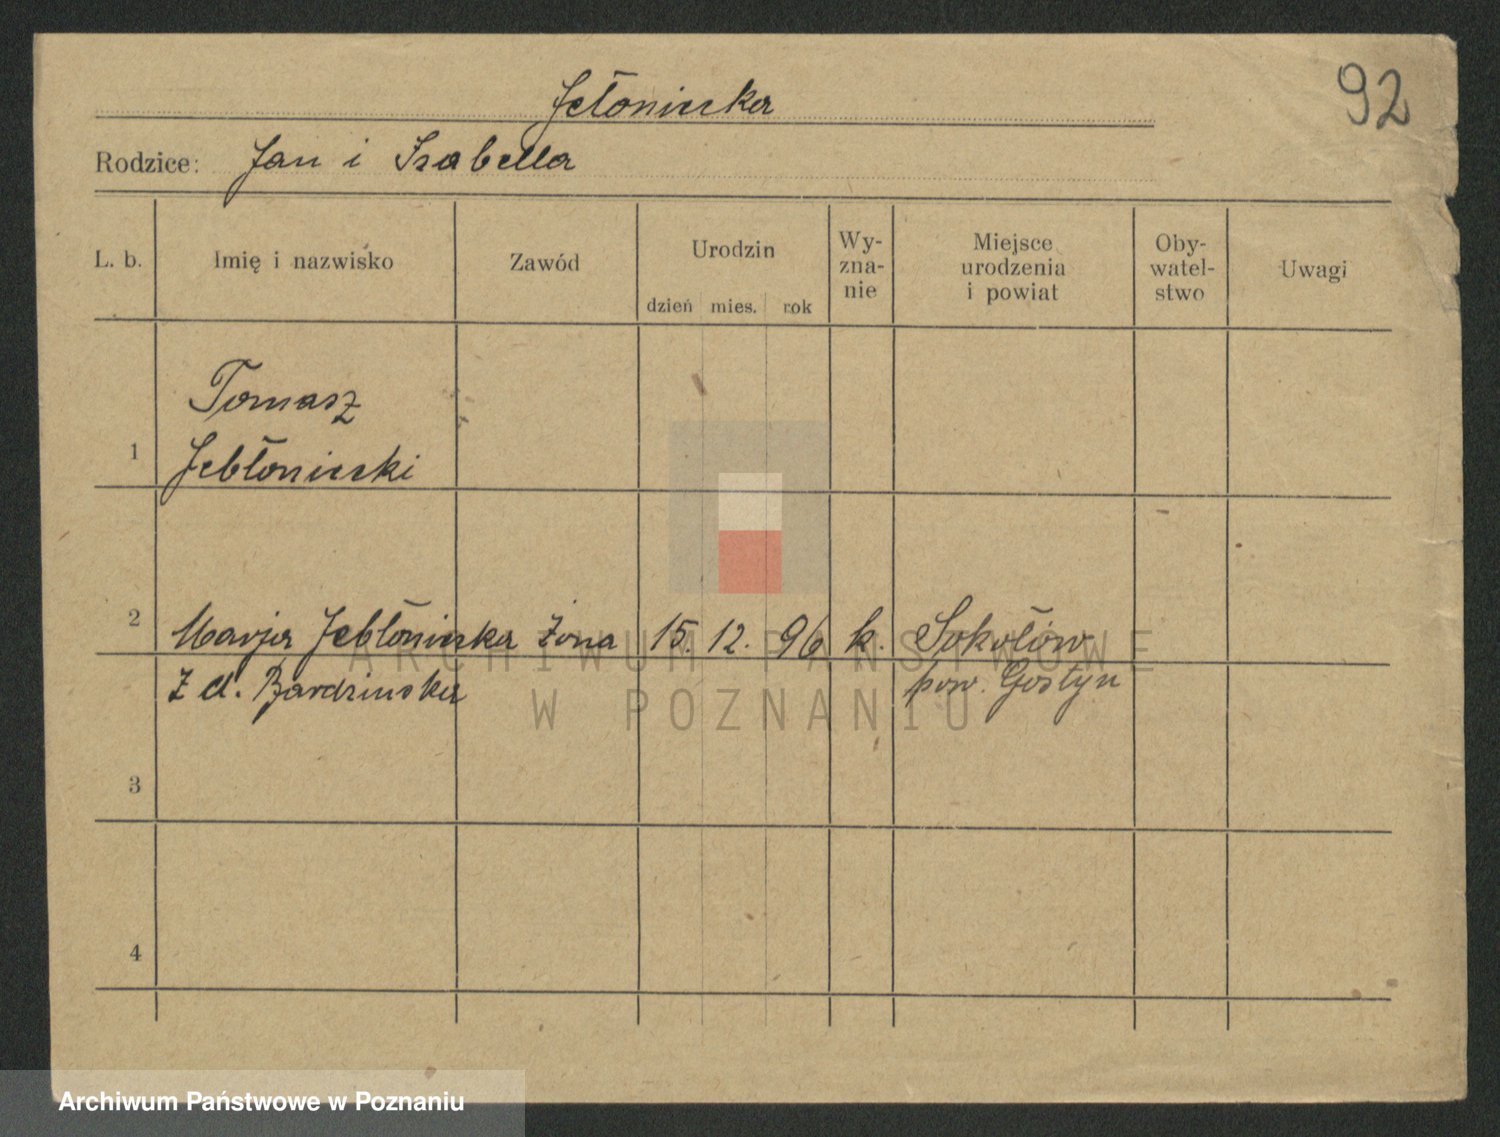 92
Jełoniecka
Rodzice: Jan i Izabella
L. b. Imię i nazwisko Zawód Urodzin dzień mies. rok Wy-zna-nie Miejsce urodzenia i powiat Oby-watel-stwo Uwagi
Tomasz
1 Jebłoniecki
2 Marja Jebłoniecka Żona 15. 12. 96 k. Sokołów
z d. Bardzinska pow. Gostyn
3
4
ARCHIWUM PAŃSTWOWE
W POZNANIU
Archiwum Państwowe w Poznaniu